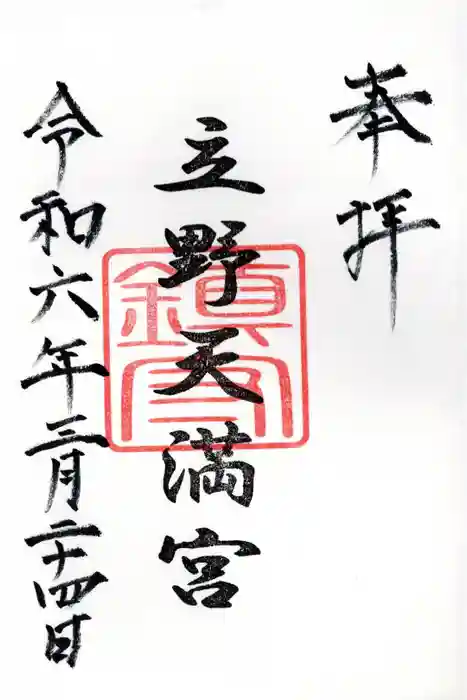 奉拝
立野天満宮
鎮守
令和六年三月二十四日